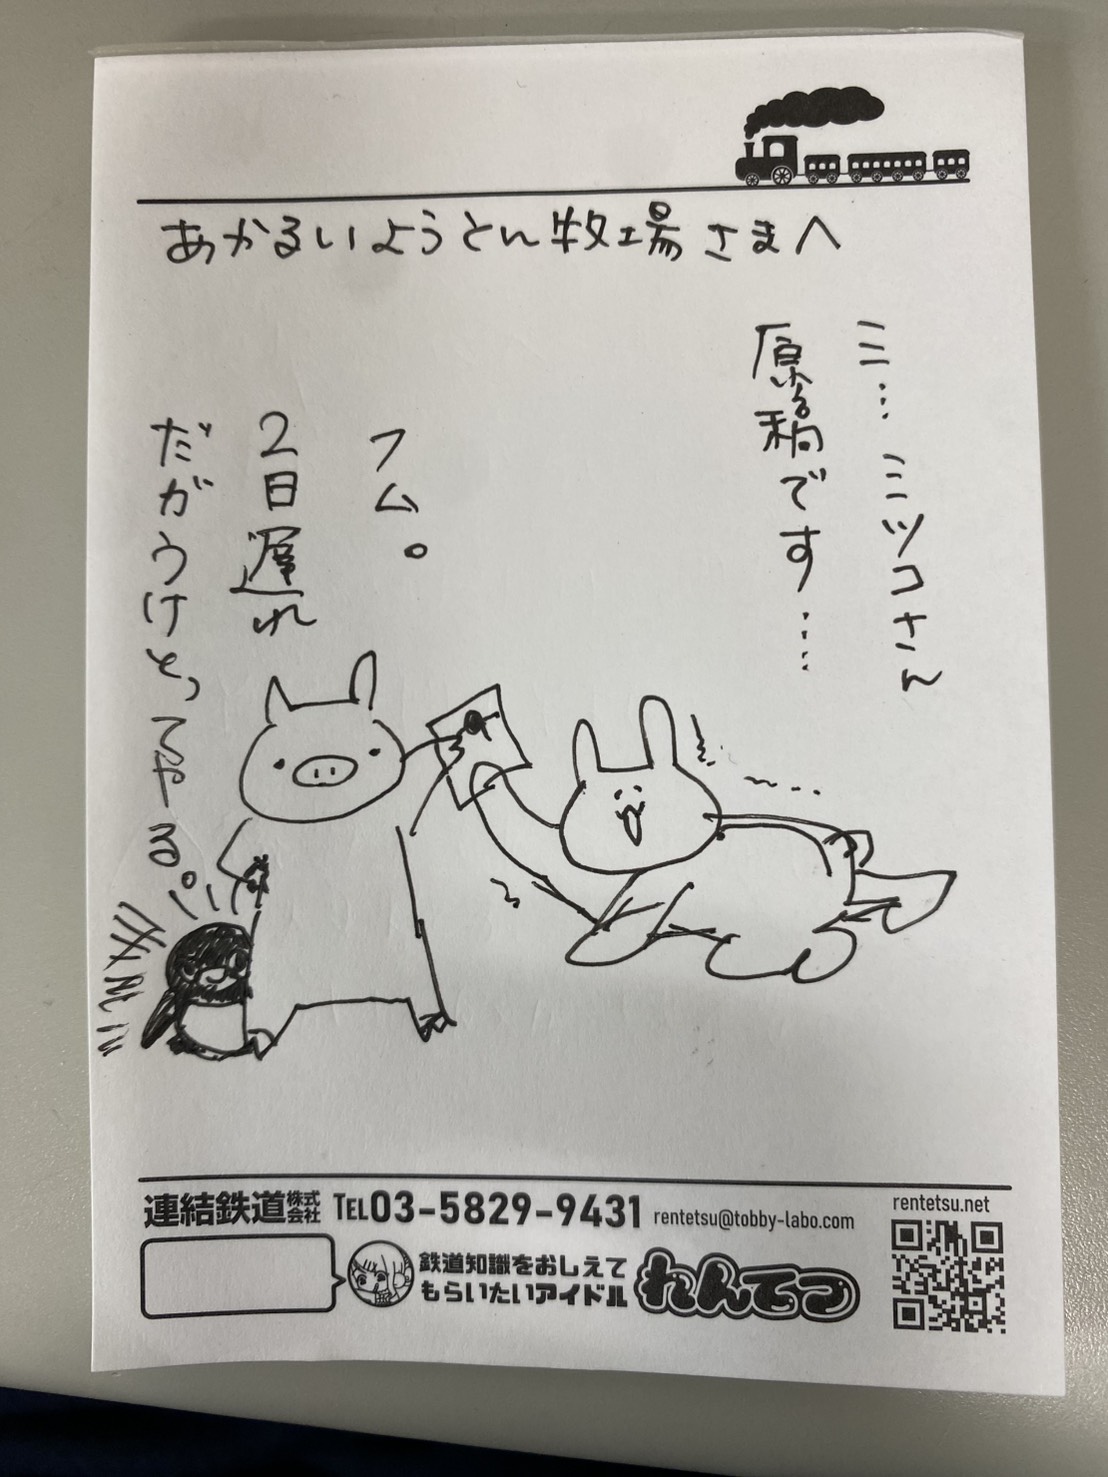 あかるいようとん牧場さまへ
ミ… ミツコさん
原稿です……
フム。
2日遅れ
だがうけとってやる。
連結鉄道株式会社 TEL03-5829-9431 rentetsu@tobby-labo.com
rentetsu.net
鉄道知識をおしえて
もらいたいアイドル
れんてつ